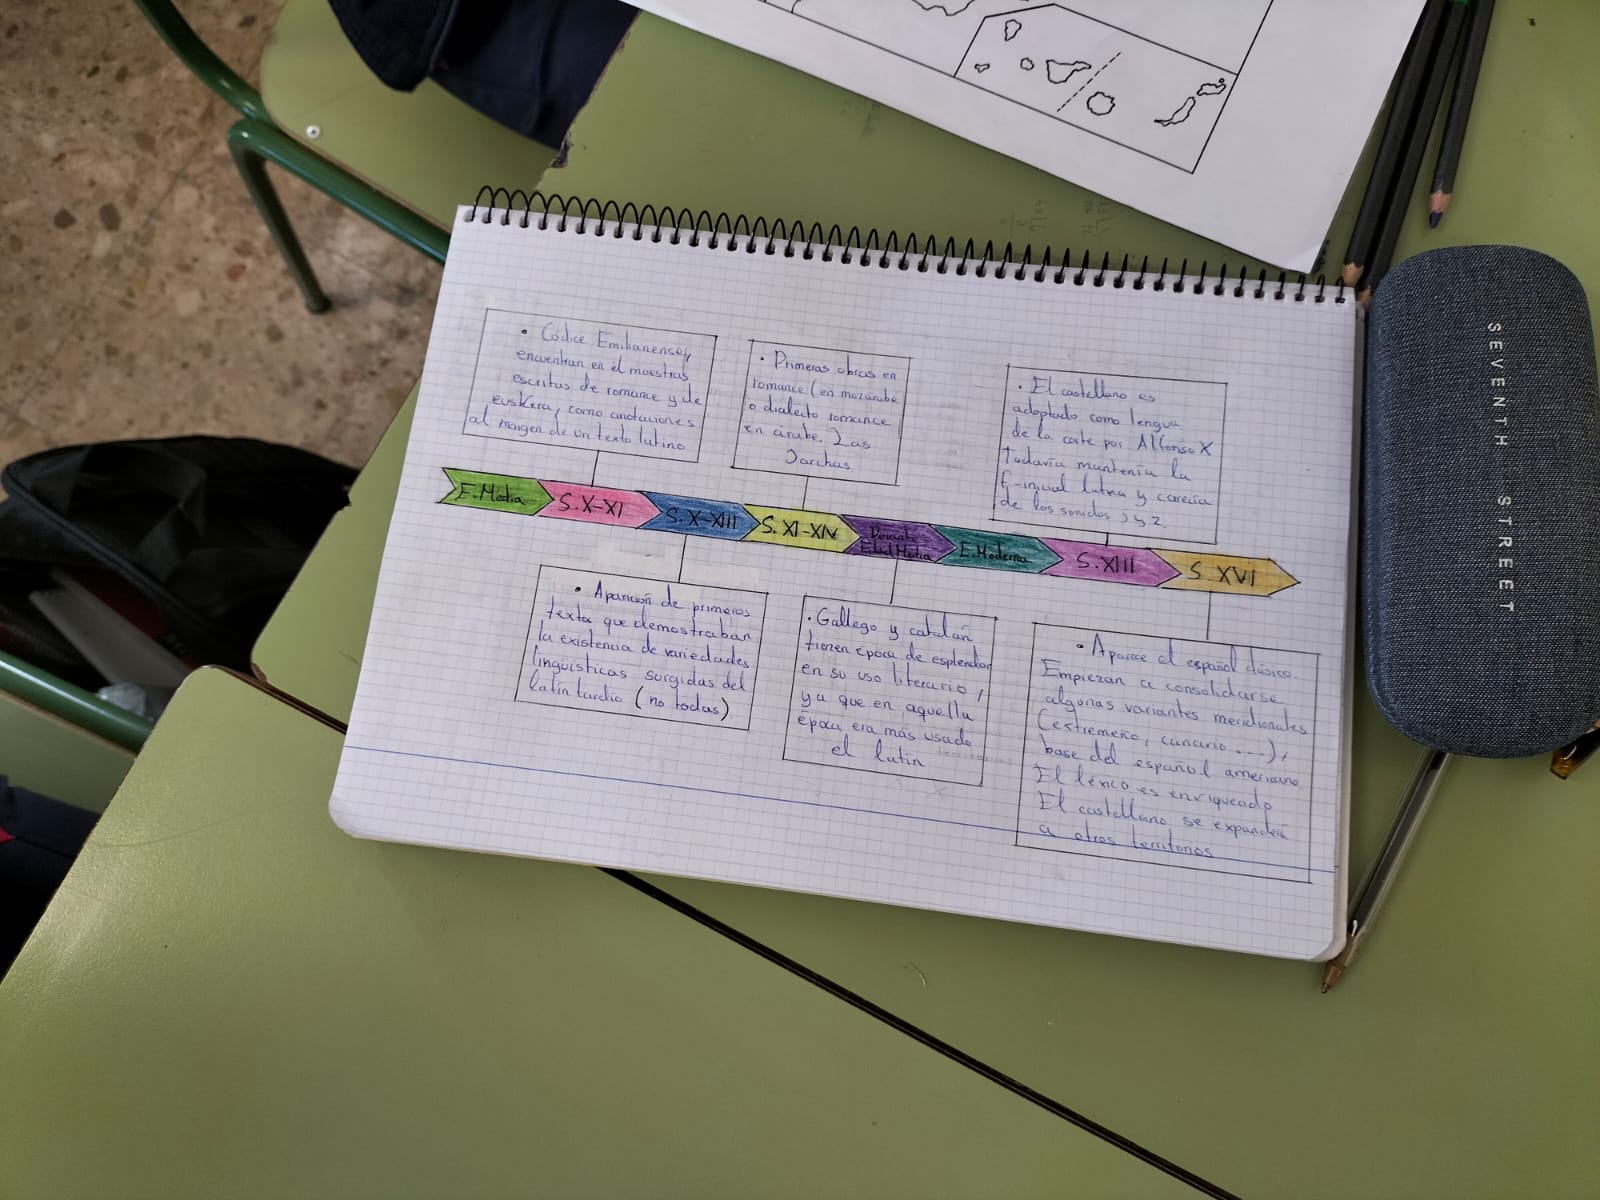 • Códice Emilianense,
encuentran en él muestras
escritas de romance y de
euskera, como anotaciones
al margen de un texto latino
• Primeras obras en
romance (en mozárabe
o dialecto romance
en árabe. Las
Jarchas
• El castellano es
adoptado como lengua
de la corte por Alfonso X
Todavía mantenía la
f-inicial latina y carecía
de los sonidos j y z.
E. Media
S. X-XI
S. X-XIII
S. XI-XIV
Durante
Edad Media
E. Moderna
S. XIII
S. XVI
• Aparición de primeros
textos que demostraban
la existencia de variedades
lingüísticas surgidas del
latín tardío (no todas)
• Gallego y catalán
tienen época de esplendor
en su uso literario,
ya que en aquella
época era más usado
el latín
• Aparece el español clásico.
Empiezan a consolidarse
algunas variantes meridionales
(estremeño, canario....),
base del español americano.
El léxico es enriquecido
El castellano se expanderá
a otros territorios
SEVENTH STREET